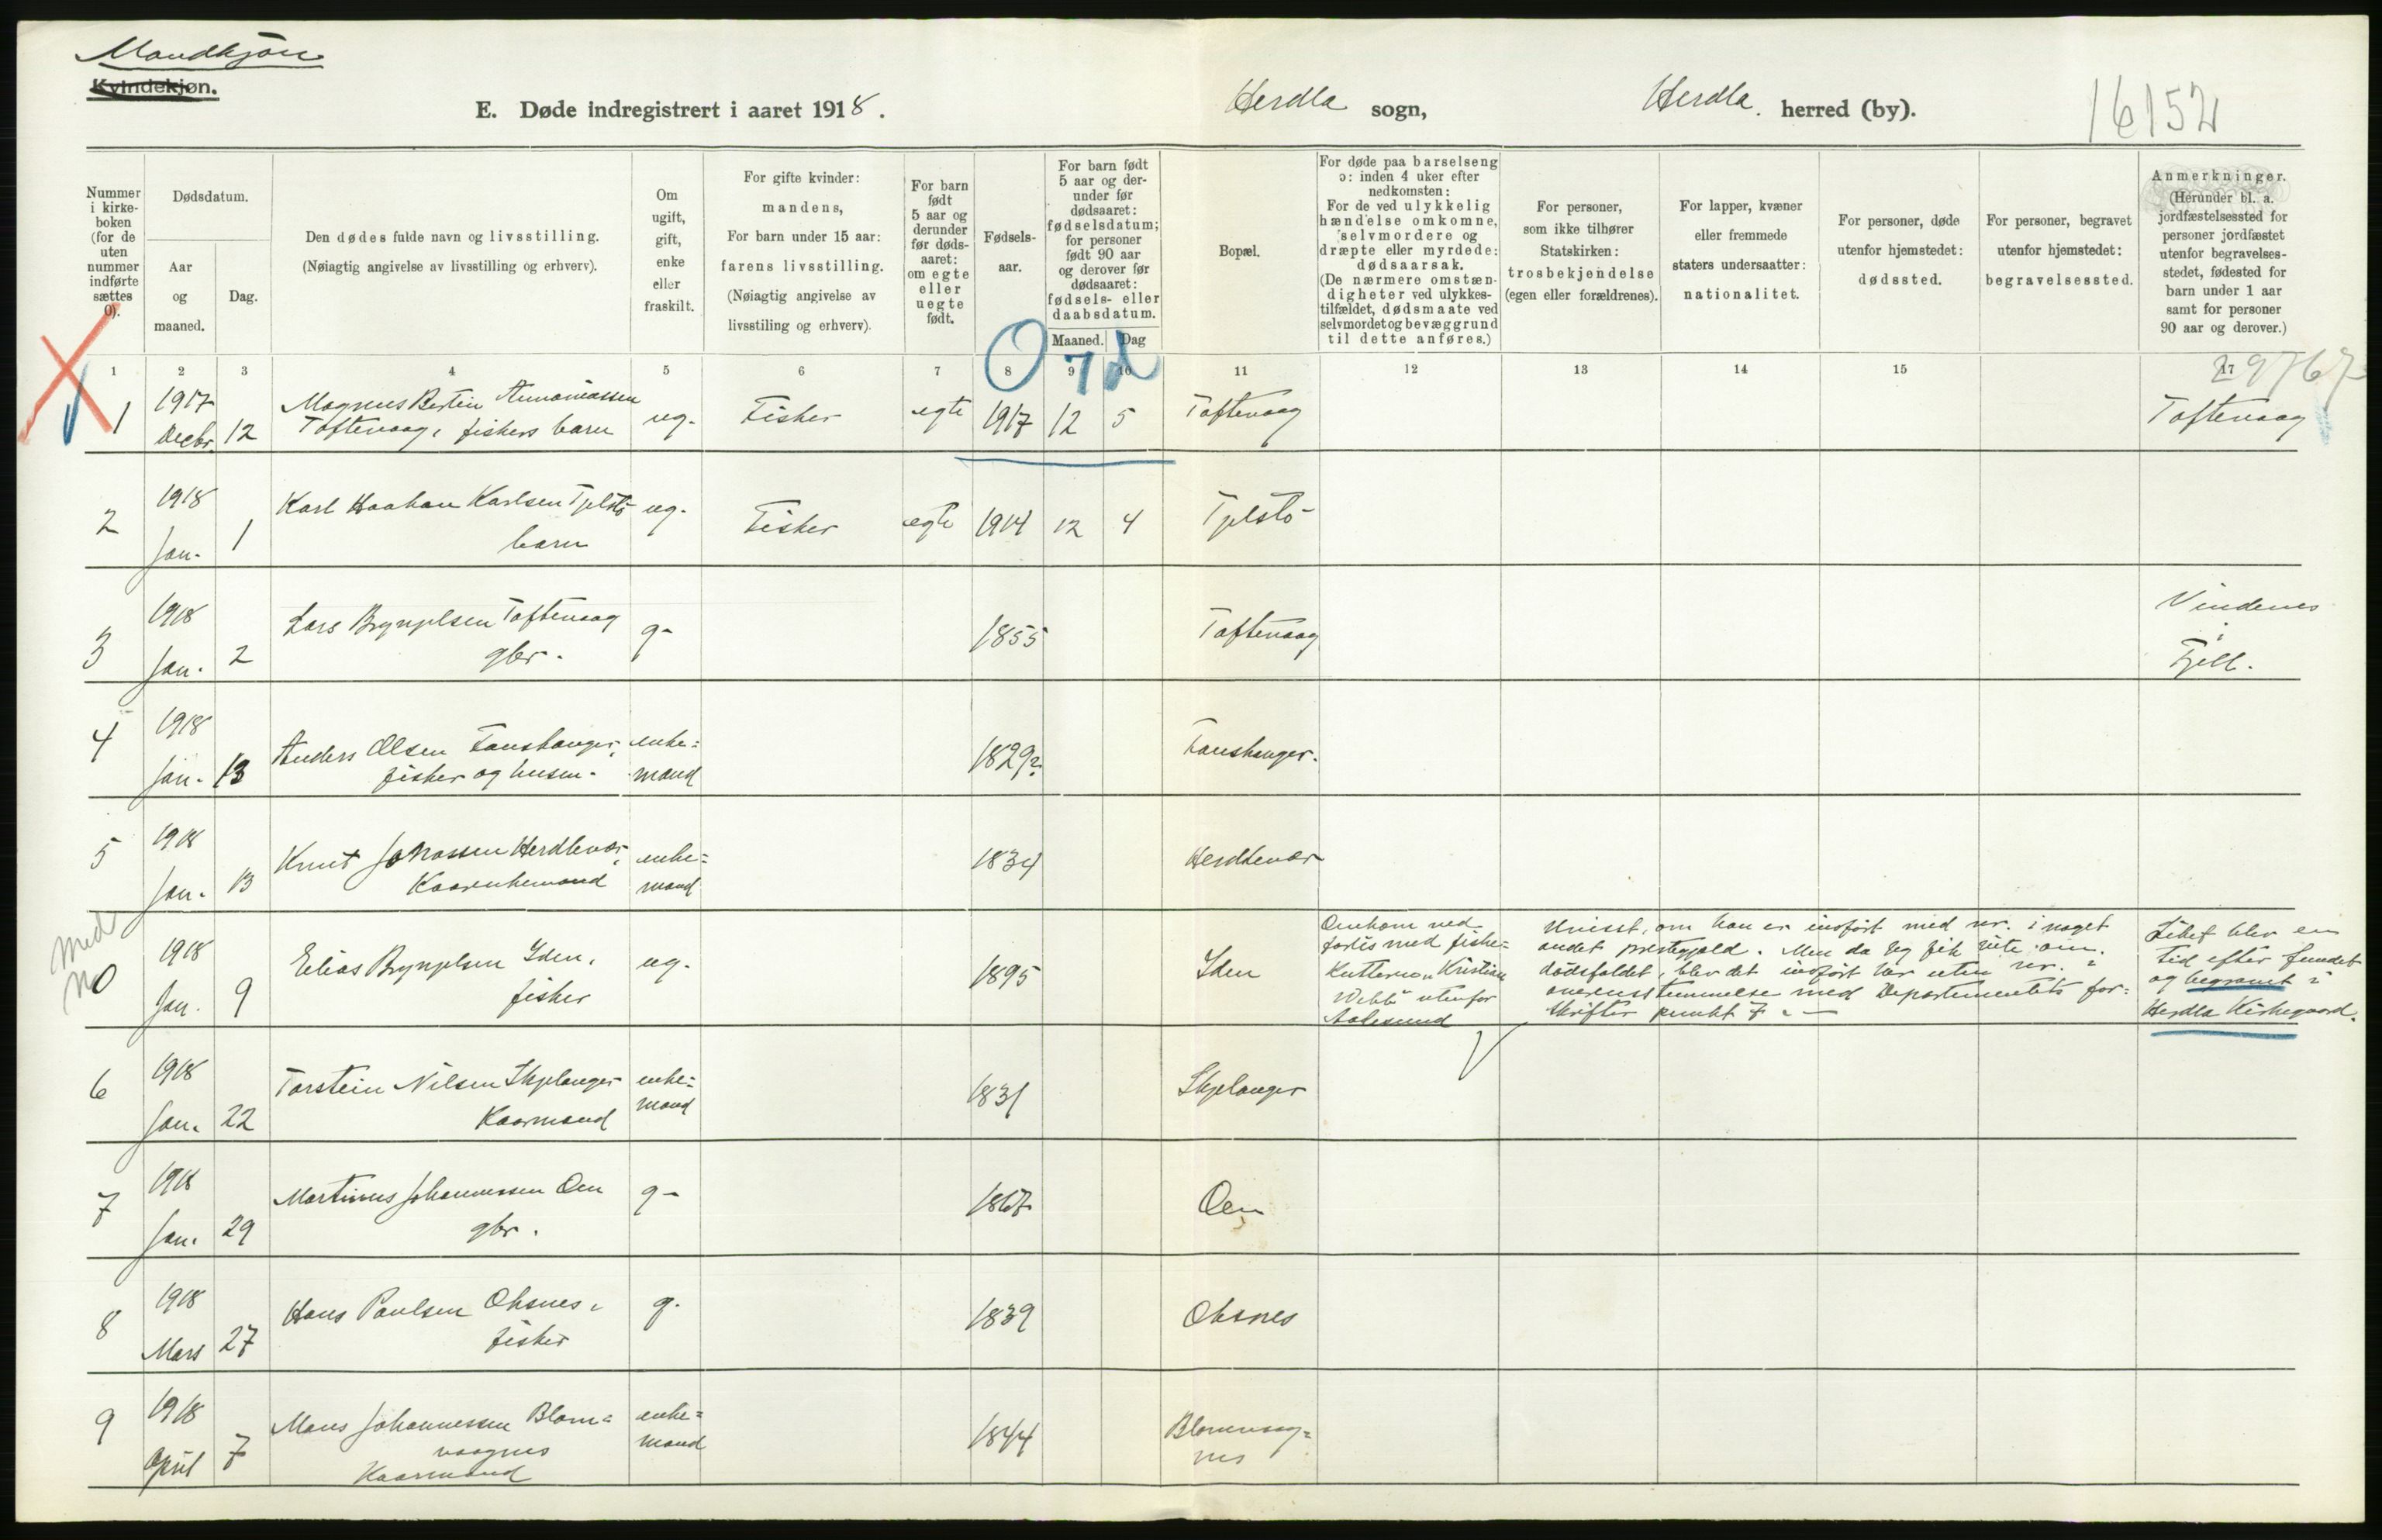 Mandkjøn
Kvindekjøn.
E. Døde indregistrert i aaret 1918.
Herdla sogn,
Herdla. herred (by).
16152
Nummer i kirkeboken (for de uten nummer indførte sættes 0).
Dødsdatum.
Aar og maaned.
Dag.
Den dødes fulde navn og livsstilling.
(Nøiagtig angivelse av livsstilling og erhverv).
Om ugift, gift, enke eller fraskilt.
For gifte kvinder: mandens,
For barn under 15 aar: farens livsstilling.
(Nøiagtig angivelse av livsstiling og erhverv).
For barn født 5 aar og derunder før dødsaaret: om egte eller uegte født.
Fødselsaar.
For barn født 5 aar og derunder før dødsaaret: fødselsdatum; for personer født 90 aar og derover før dødsaaret: fødsels- eller daabsdatum.
Maaned. Dag
Bopæl.
For døde paa barselseng ɔ: inden 4 uker efter nedkomsten:
For de ved ulykkelig hændelse omkomne, selvmordere og dræpte eller myrdede: dødsaarsak.
(De nærmere omstændigheter ved ulykkestilfældet, dødsmaate ved selvmordet og bevæggrund til dette anføres.)
For personer, som ikke tilhører Statskirken: trosbekjendelse (egen eller forældrenes).
For lapper, kvæner eller fremmede staters undersaatter: nationalitet.
For personer, døde utenfor hjemstedet: dødssted.
For personer, begravet utenfor hjemstedet: begravelsessted.
Anmerkninger.
(Herunder bl. a. jordfæstelsessted for personer jordfæstet utenfor begravelsesstedet, fødested for barn under 1 aar samt for personer 90 aar og derover.)
0 7 d
1 2 3 4 5 6 7 8 9 10 11 12 13 14 15 17
1 1917 Decbr. 12 Magnus Bertin Annaniassen Toftevaag, fiskers barn ug. Fisker egte 1917 12 5 Toftevaag Toftevaag
2 1918 Jan. 1 Karl Haakon Karlsen Tjelstø barn ug. Fisker egte 1914 12 4 Tjelstø
3 1918 Jan. 2 Lars Brynjelsen Toftevaag gbr. g. 1855 Toftevaag Vindenes i Fjell.
4 1918 Jan. 13 Anders Olsen Fauskanger, fisker og husm. enkemand 1829? Fauskanger.
5 1918 Jan. 13 Knut Johnassen Herdlevær, Kaarenkemand enkemand 1834 Herdlevær
Med no
0 1918 Jan. 9 Elias Brynjelsen Yden, fisker ug. 1895 Yden
Omkom ved forlis med fiskekutteren "Kristian Wibb" utenfor Aalesund
Uvisst, om han er indført med nr. i noget
andet prestegjeld. Men da jeg fik vite om
dödsfaldet, blev det indført her uten nr. i
overensstemmelse med Departementets for-
skrifter punkt 7. —
Liket blev en tid efter fundet og begravet i Herdla Kirkegaard.
6 1918 Jan. 22 Torstein Nilsen Skjelanger Kaarmand enkemand 1831 Skjelanger
7 1918 Jan. 29 Martinus Johannessen Oen gbr. g. 1867 Oen
8 1918 Mars 27 Hans Paulsen Oksnes, fisker g. 1839 Oksnes
9 1918 April 7 Mons Johannessen Blomvaagnes Kaarmand enkemand 1844 Blomvaagnes